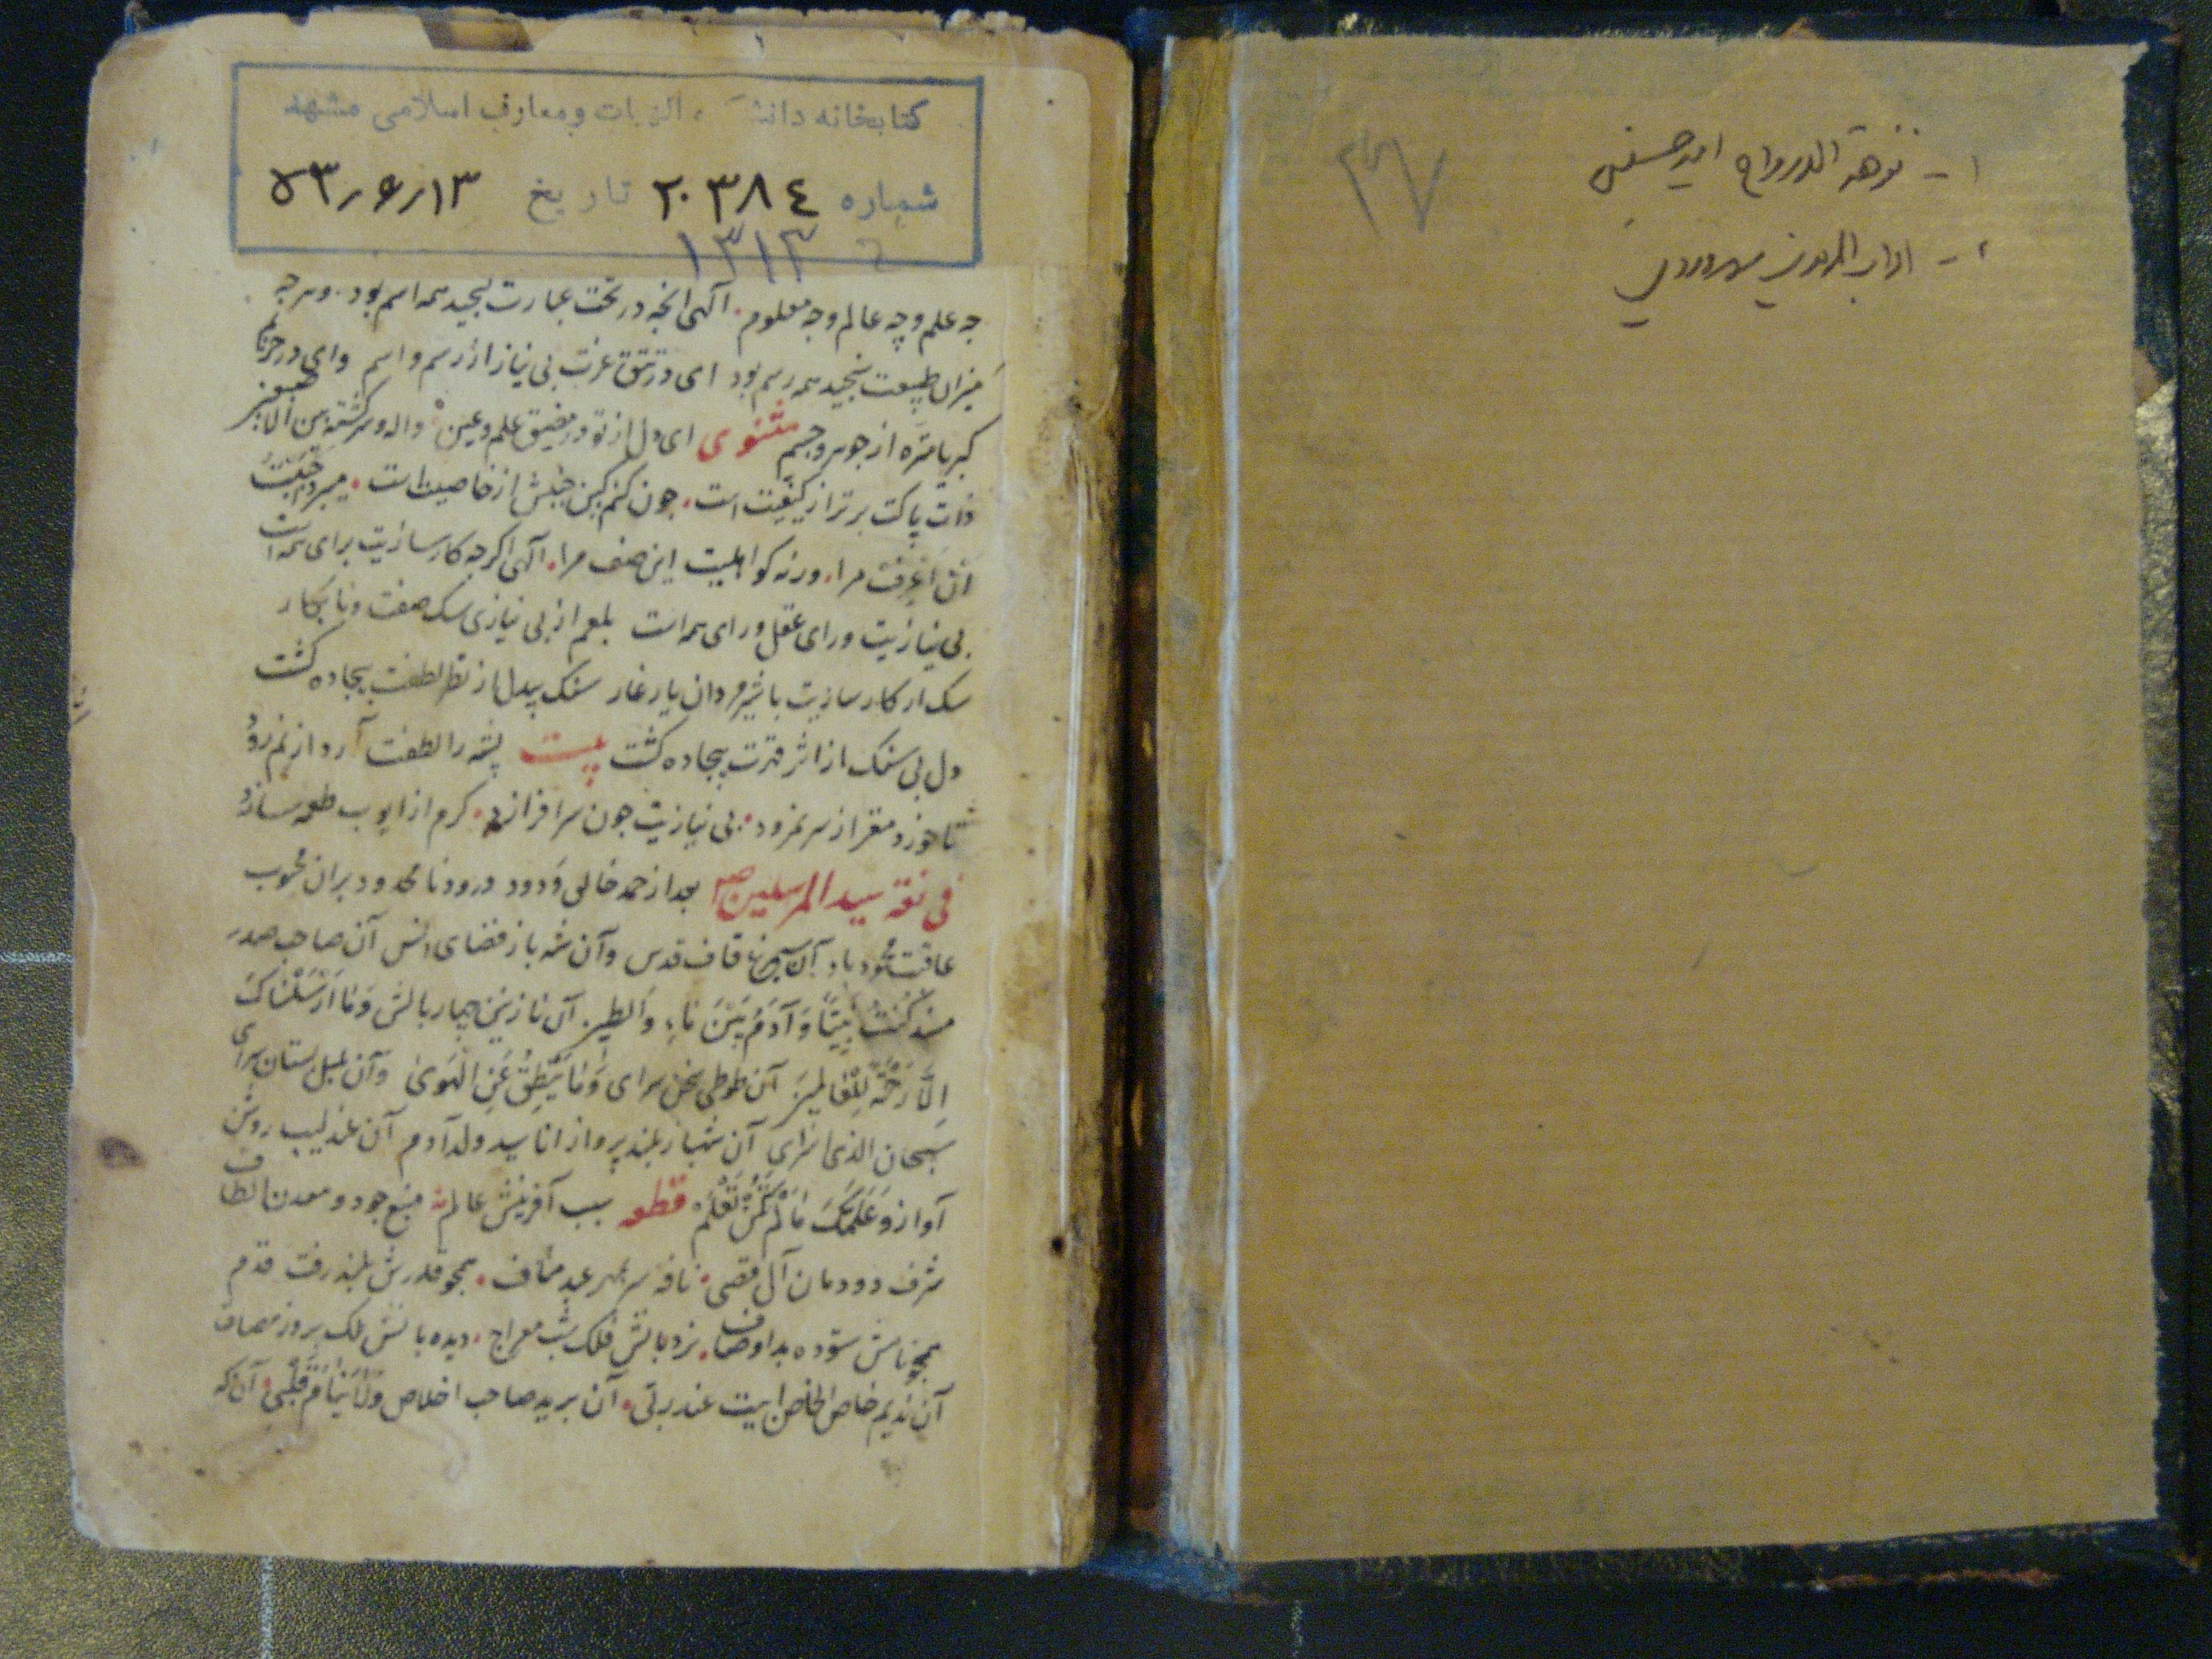 ۱- نزهة الارواح امیر حسینی
۲- اداب المریدین سهروردی
۳۷
کتابخانه دانش الهیات و معارف اسلامی مشهد
شماره ۲۰۳۸۴ تاریخ ۵۳٫۶٫۱۳
۱۳۱۳
جه علم وچه عالم وجه معلوم آلهی انجه در تحت عبارت بجید همه اسم بود وهرجه
میزان طبیعت سنجید همه رسم بود ای در تتق عزت بی نیاز از رسم و اسم وای در حرم
کبریا منزه از جوهر وجسم مثنوی ای دل از تو در مضیق علم وعین واله وسرکشته بین
ذات پاکت برتر از کیفیت است جون کنم کین جنبش از خاصیت است میبرد
ان اعرف مرا ورنه کو اهلیت این صف مرا آلهی اکرجه کارسازیت برای همه است
بی نیازیت ورای عقل ورای همه است بلعم از بی نیازی سک صفت ونابکار
سک از کارسازیت باشیر مردان یار غار سنک بیدل از نظر لطفت بیجاده کشت
دل بی سنک از اثر قدرت بیجاده کشت بیت پشه را لطفت آرد از نم رود
تا خورد مغز از سر نمرود بی نیازیت جون سرافرازد کرم از ایوب طعمه سازد
فی نعت سید المرسلین بعد از حمد خالق ودود درود نامحدود بران محبوب
عاقبت محمود باد آن سیمرغ قاف قدس وآن شه باز فضای انس آن صاحب صدر
مسند کُنْتُ نَبِیّاً وَآدَمُ بَیْنَ ماء والطین آن نازنین چهار بالش وَمَا اَرْسَلْنَاکَ
اِلَّا رَحْمَةً لِلْعَالَمِینَ آن طوطی سخن سرای وَمَا یَنْطِقُ عَنِ الْهَوی وآن بلبل ستان سرای
سبحان الذی اسری آن شهباز بلند پرواز انا سید ولد آدم آن عندلیب روشن
آواز وَعَلَّمَکَ مَا لَمْ تَکُنْ تَعْلَمُ قطعه سبب آفرینش عالم منبع جود ومعدن الطاف
شرف دودمان آل قصی نافه سر بمهر عبد مناف همجو قدرش بلند رفت قدم
همجو نامش ستوده بد اوصاف نردبانش فلک بشب معراج دیده بانش ملک بروز مصاف
آن ندیم خاص الخاص ابیت عند ربی آن برید صاحب اخلاص ولا ینام قلبی آن که